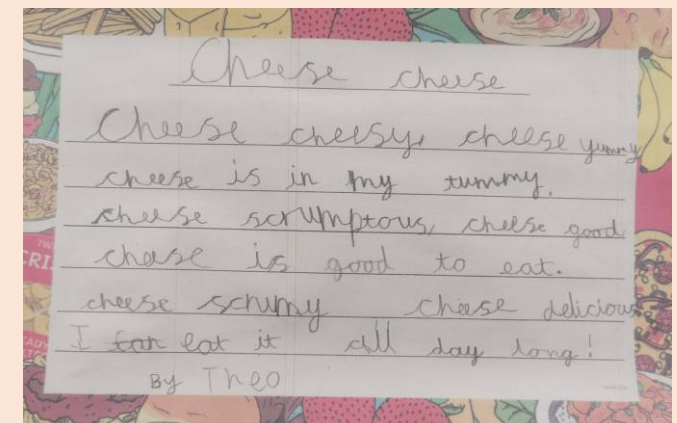 Cheese cheese
Cheese cheesy, cheese yummy
cheese is in my tummy.
cheese scrumptous, cheese good
cheese is good to eat.
cheese scrumy cheese delicious
I can eat it all day long!
By Theo